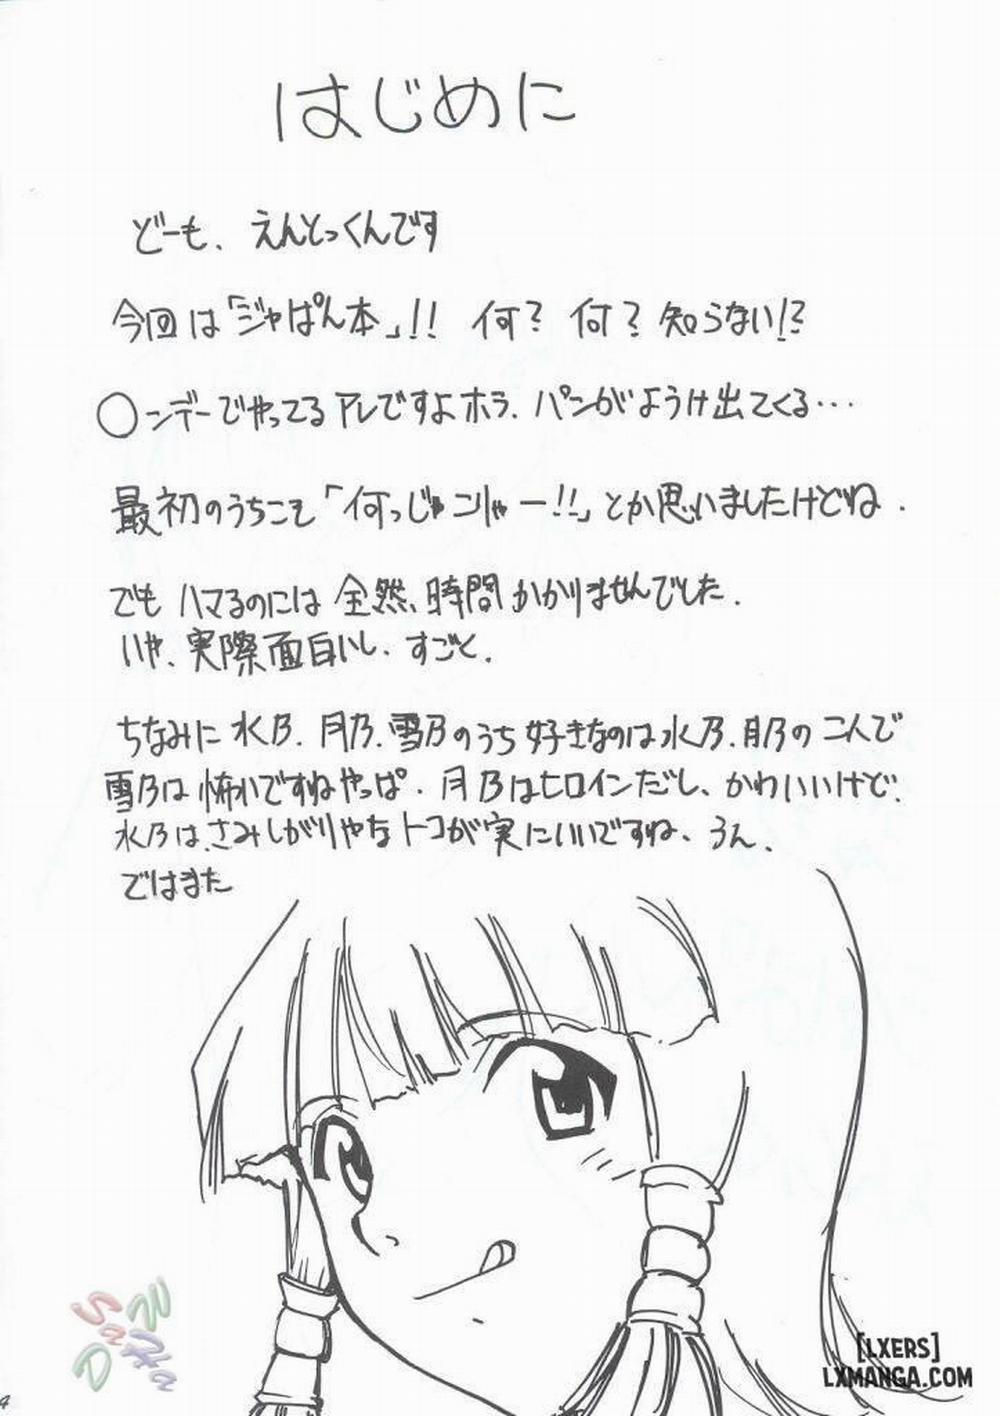 はじめに
どーも、えんとっくんです
今回は「ジャぱん本」!! 何? 何? 知らない!?
○ンデーでやってるアレですよホラ、パンがようけ出てくる…
最初のうちこそ「何っじゃこりゃー!!」とか思いましたけどね.
でもハマるのには全然、時間かかりませんでした.
いや、実際面白いし、すごく.
ちなみに水乃、月乃、雪乃のうち好きなのは水乃、月乃の二人で
雪乃は怖いですねやっぱ. 月乃はヒロインだし、かわいいけど、
水乃は、さみしがりやなトコが実にいいですね、うん.
ではまた
[LXERS]
LXMANGA.COM
4